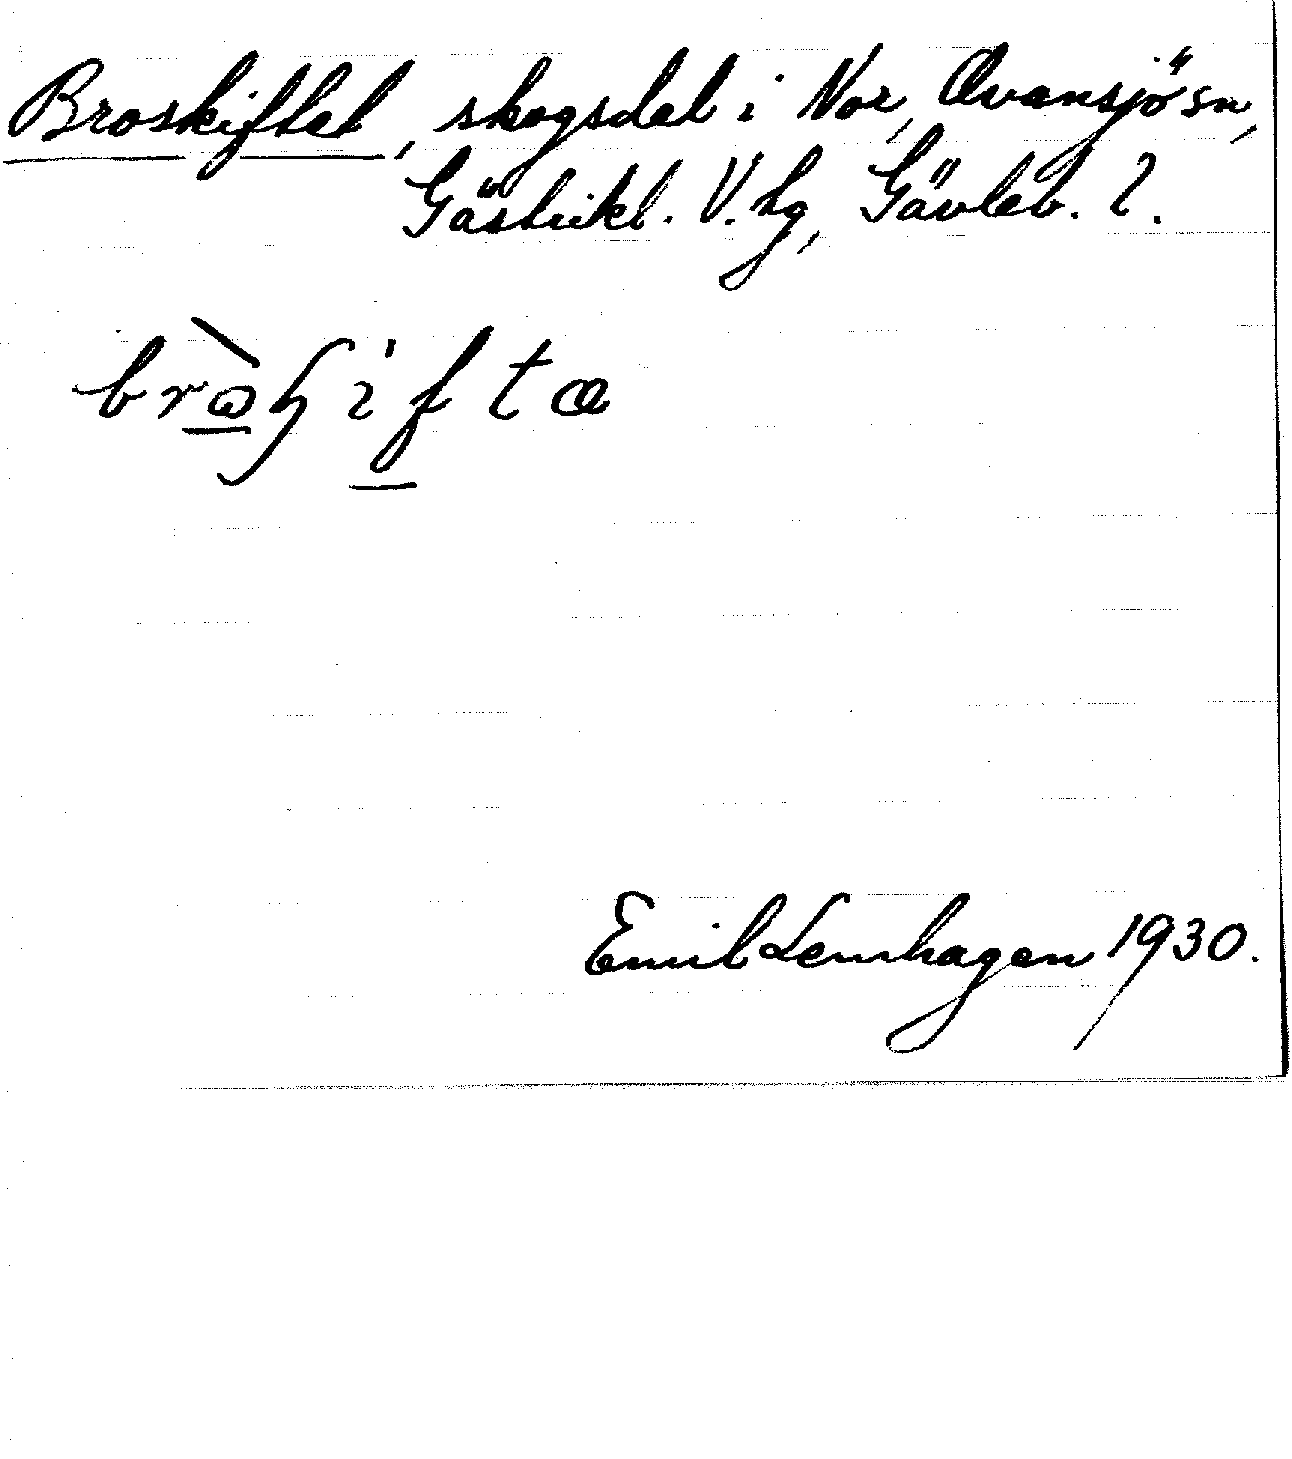 Broskiftet, skogsdel i Nor, Ovansjö sn,
Gästrikl. V. hg, Gävleb. l.
Emil Lenhagen 1930.